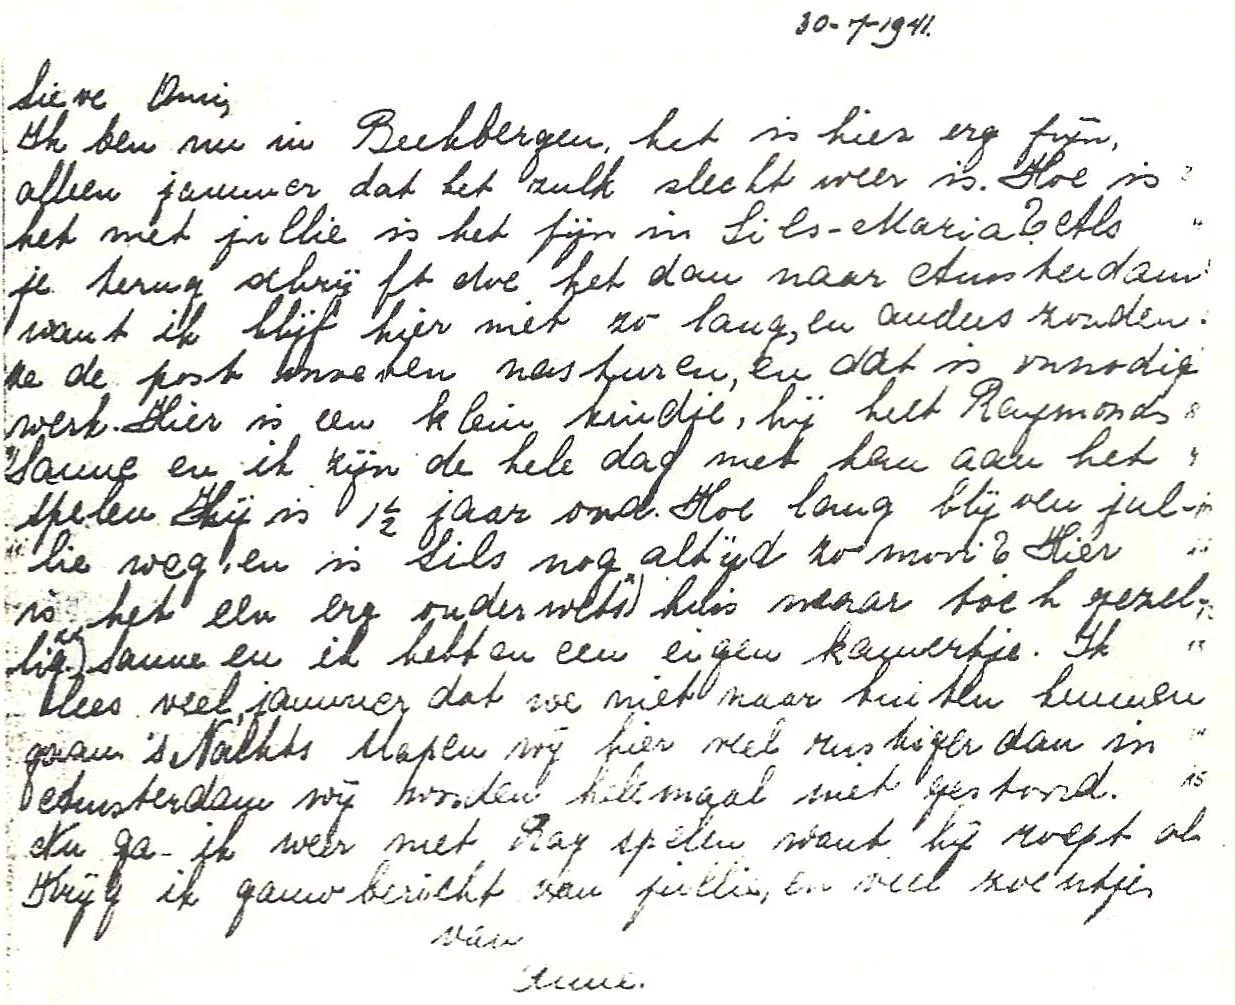 30-7-1941.
Lieve Omi,
Ik ben nu in Beekbergen, het is hier erg fijn,
alleen jammer dat het zulk slecht weer is. Hoe is
het met jullie is het fijn in Sils-Maria? Als
je terug schrijft doe het dan naar Amsterdam
want ik blijf hier niet zo lang, en anders zouden
ze de post moeten nasturen, en dat is onnodig
werk. Hier is een klein kindje, hij heet Raymond
Sanne en ik zijn de hele dag met hem aan het
spelen Hij is 1½ jaar oud. Hoe lang blijven jul-
lie weg, en is Sils nog altijd zo mooi? Hier
is het een erg ouderwets huis maar toch gezel-
lig) Sanne en ik hebben een eigen kamertje. Ik
lees veel, jammer dat we niet naar buiten kunnen
gaan 's Nachts slapen wij hier veel rustiger dan in
Amsterdam wij worden helemaal niet gestoord.
Nu ga ik weer met Ray spelen want hij roept al
Krijg ik gauw bericht van jullie, en veel zoentjes
van
Anne.